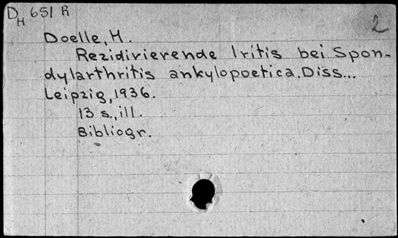 D_H 651 R
2
Doelle, H.
Rezidivierende Iritis bei Spon-
dylarthritis ankylopoetica. Diss...
Leipzig, 1936.
13 s., ill.
Bibliogr.